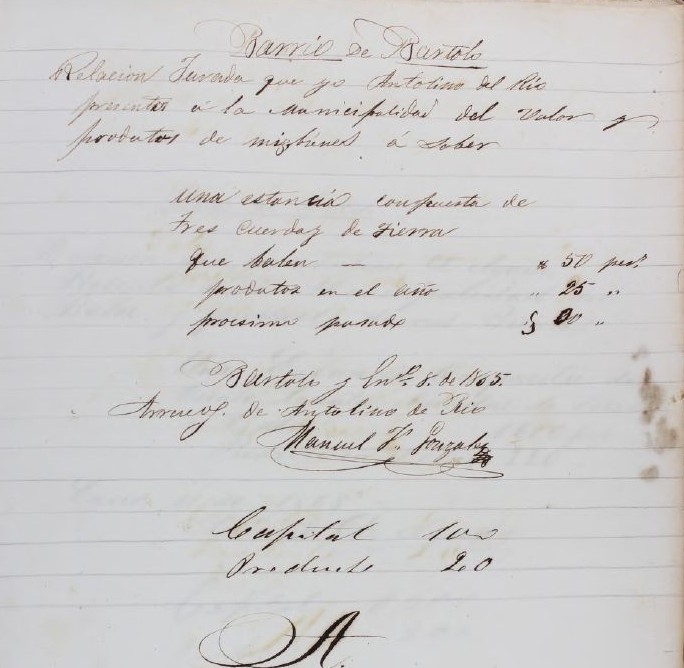 Barrio de Bartolo
Relacion Jurada que yo Antolino del Rio
presento á la Municipalidad del Valor y
produtos de mis bines á Saber
una estancia compuesta de
tres cuerdas de tierra
que balen — 50 pes.
produtos en el año " 25 "
procsimo pasado 00 "
Bartolo y En.º 8. de 1865.
Arruego. de Antolino de Rio
Manuel F. Gonzalez
Capital 100
Producto 20
A.